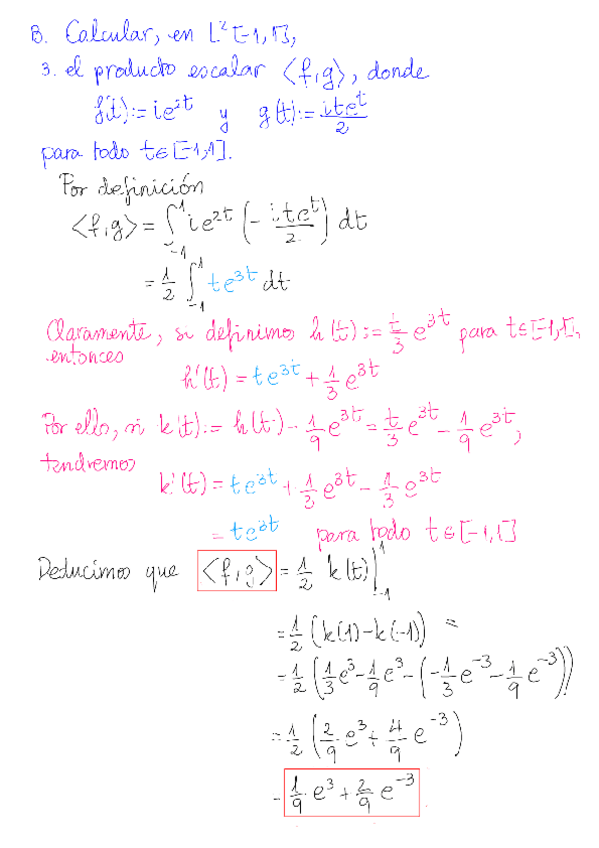 B. Calcular, en L²[-1,1],
3. el producto escalar ⟨f,g⟩, donde
f(t):=ie^{2t} y g(t):=\frac{ite^t}{2}
para todo t∈[-1,1].
Por definición
⟨f,g⟩=∫_{-1}^{1} ie^{2t} (-\frac{ite^t}{2}) dt
=\frac{1}{2} ∫_{-1}^{1} te^{3t} dt
Claramente, si definimos h(t):=\frac{t}{3} e^{3t} para t∈[-1,1],
entonces
h'(t)=te^{3t}+\frac{1}{3}e^{3t}
Por ello, si k(t):=h(t)-\frac{1}{9}e^{3t}=\frac{t}{3}e^{3t}-\frac{1}{9}e^{3t},
tendremos
k'(t)=te^{3t}+\frac{1}{3}e^{3t}-\frac{1}{3}e^{3t}
=te^{3t} para todo t∈[-1,1]
Deducimos que ⟨f,g⟩=\frac{1}{2} k(t)|_{-1}^{1}
=\frac{1}{2}(k(1)-k(-1)) =
=\frac{1}{2}(\frac{1}{3}e^3-\frac{1}{9}e^3-(-\frac{1}{3}e^{-3}-\frac{1}{9}e^{-3}))
=\frac{1}{2}(\frac{2}{9}e^3+\frac{4}{9}e^{-3})
=\frac{1}{9}e^3+\frac{2}{9}e^{-3}